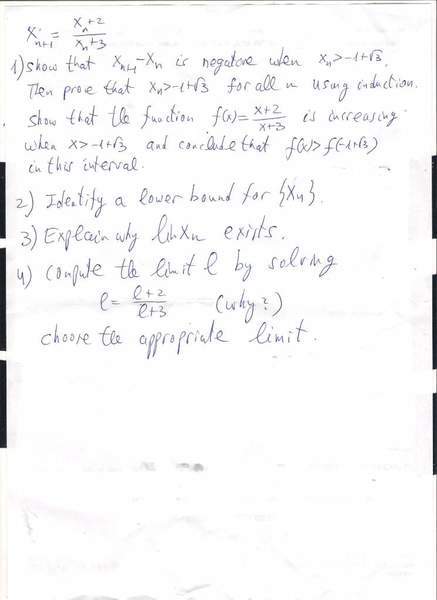 x_{n+1} = \frac{x_n+2}{x_n+3}
1) show that x_{n+1}-x_n is negative when x_n>-1+√3.
Then prove that x_n>-1+√3 for all n using induction.
show that the function f(x)=\frac{x+2}{x+3} is increasing
when x>-1+√3 and conclude that f(x)>f(-1+√3)
in this interval.
2) Identify a lower bound for {x_n}.
3) Explain why lim x_n exists.
4) compute the limit ℓ by solving
ℓ = \frac{ℓ+2}{ℓ+3} (why?)
choose the appropriate limit.